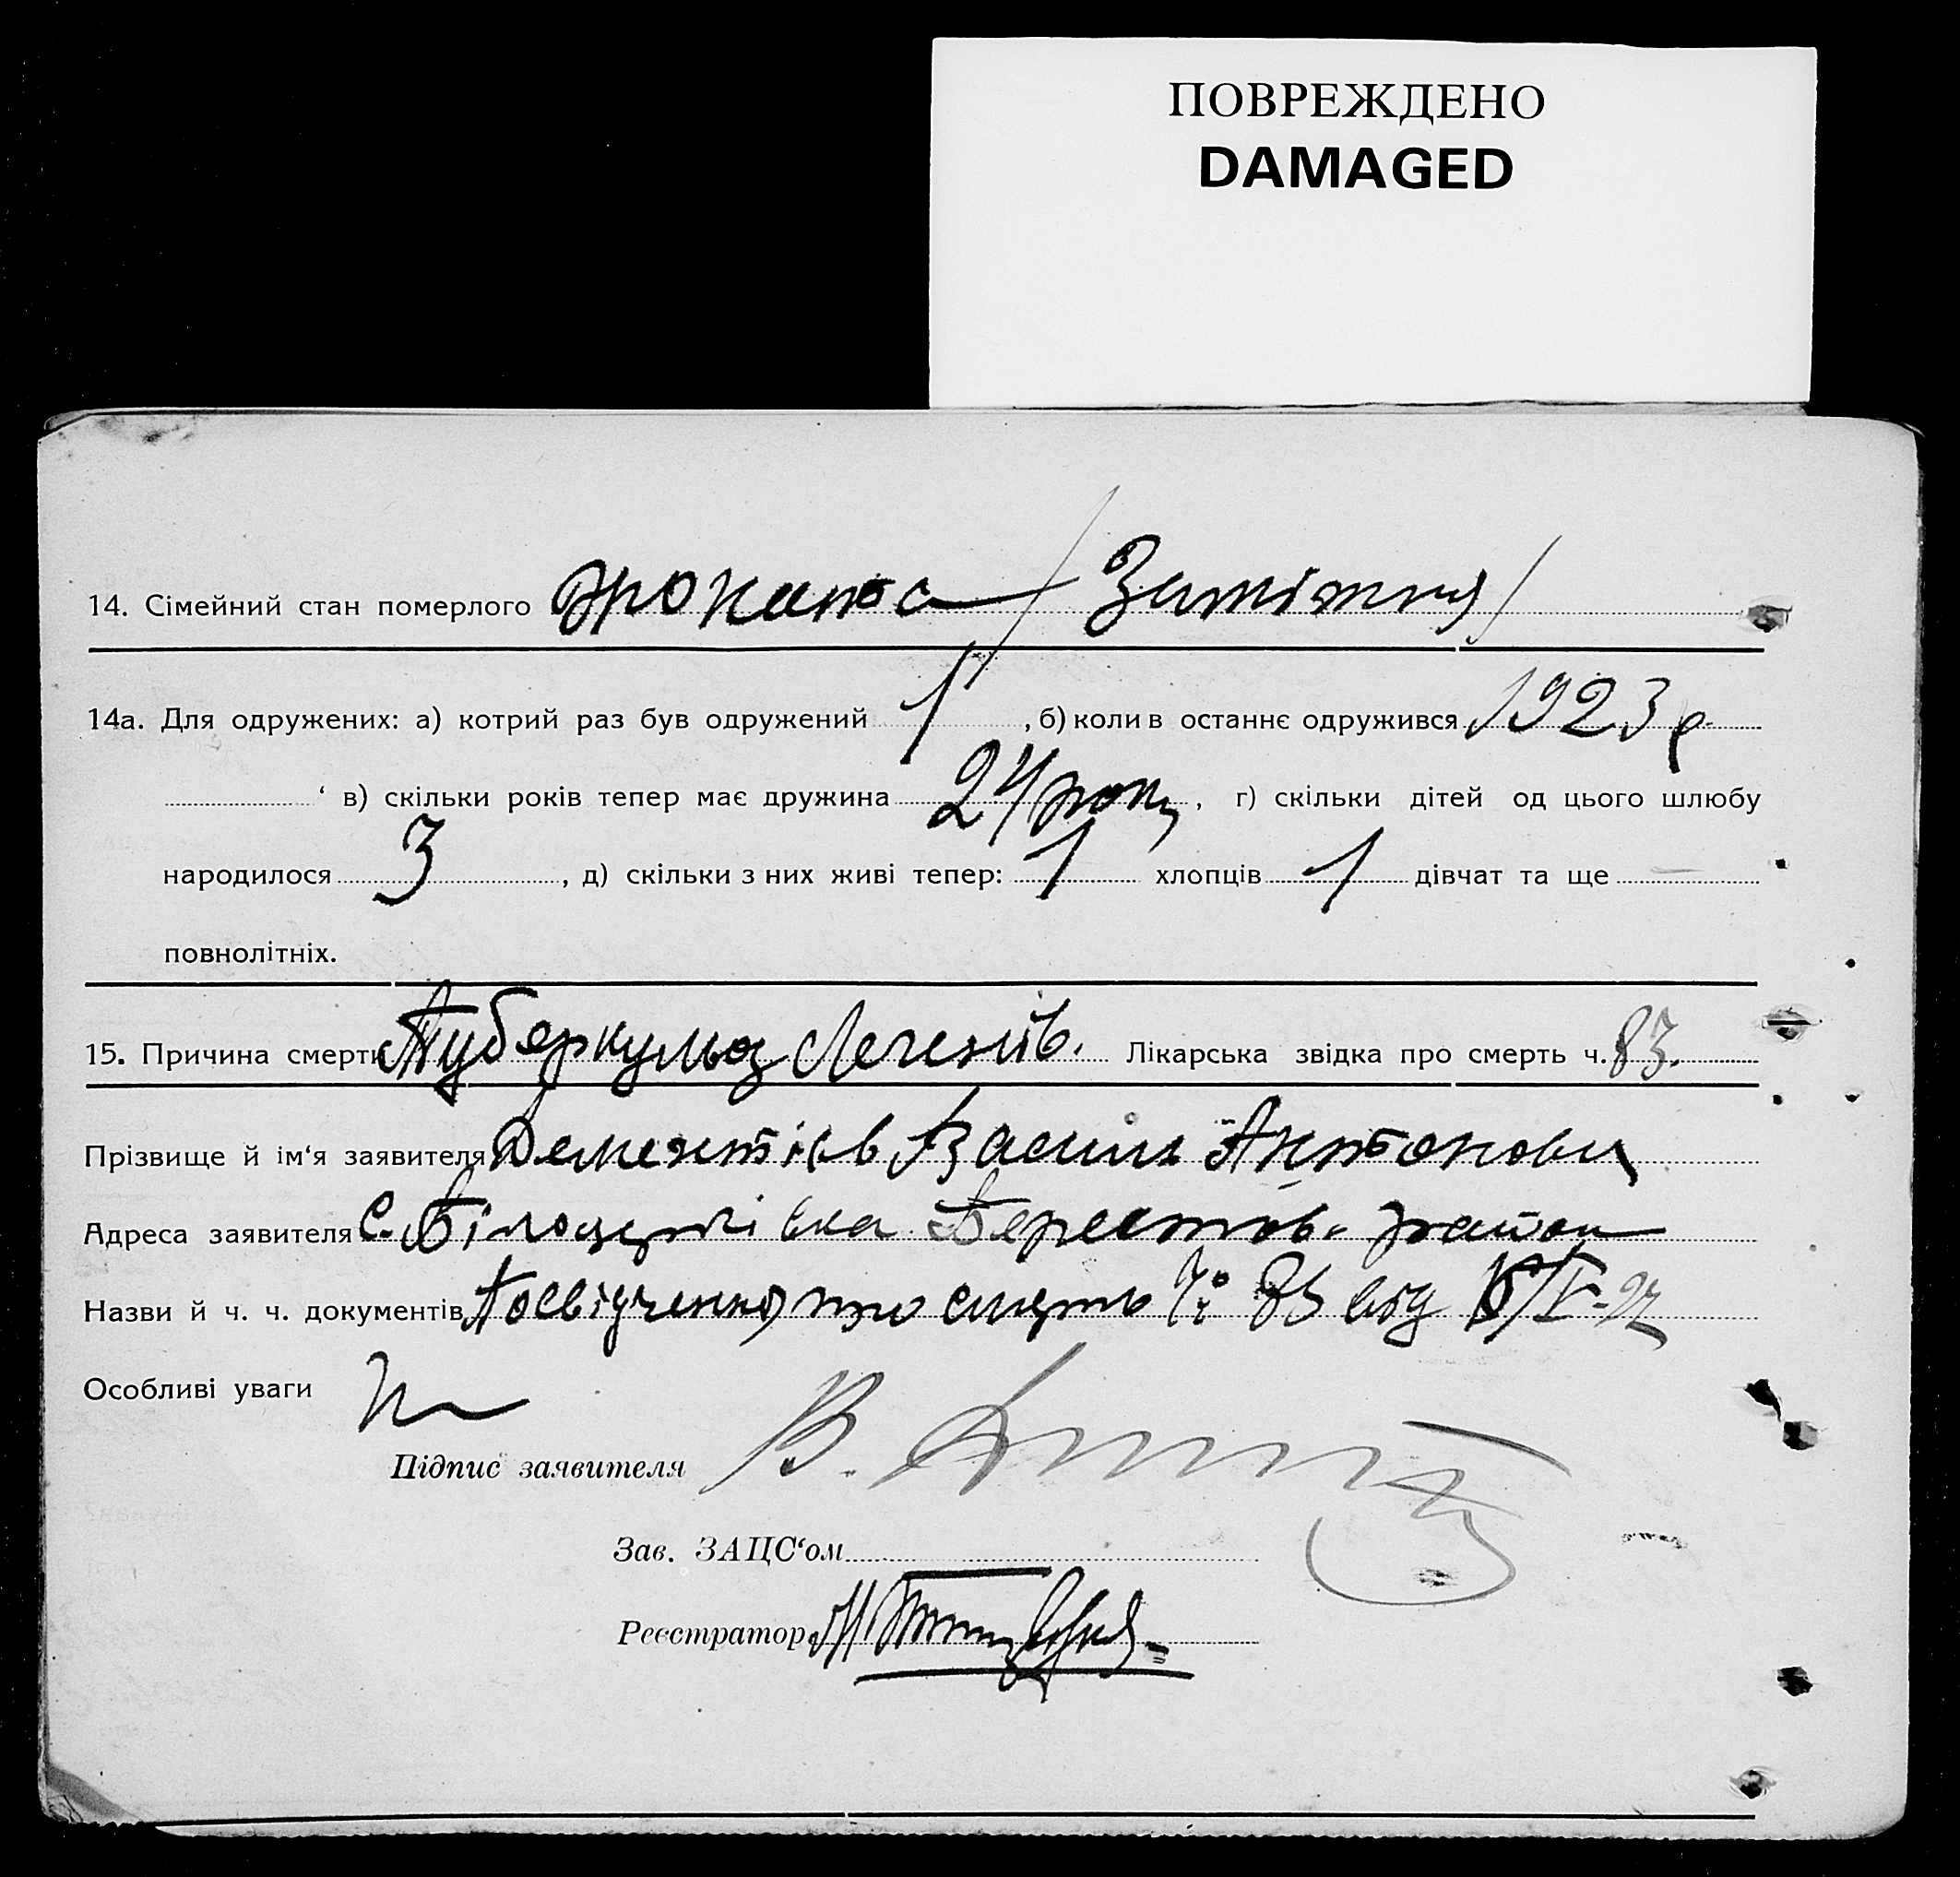 ПОВРЕЖДЕНО
DAMAGED
14. Сімейний стан померлого жоната / Заміжня /
14а. Для одружених: а) котрий раз був одружений 1, б) коли в останнє одружився 1923 р
‘ в) скільки років тепер має дружина 24 роки, г) скільки дітей од цього шлюбу
народилося 3, д) скільки з них живі тепер: 1 хлопців 1 дівчат та ще —
повнолітніх.
15. Причина смерти Туберкульоз Легенів. Лікарська звідка про смерть ч. 83.
Прізвище й ім‘я заявителя Дементієв Василь Антонович
Адреса заявителя с. Берестов. район
Назви й ч. ч. документів Посвідчення про смерть № 83 від
Особливі уваги
Підпис заявителя В.
Зав. ЗАЦС‘ом
Реєстратор